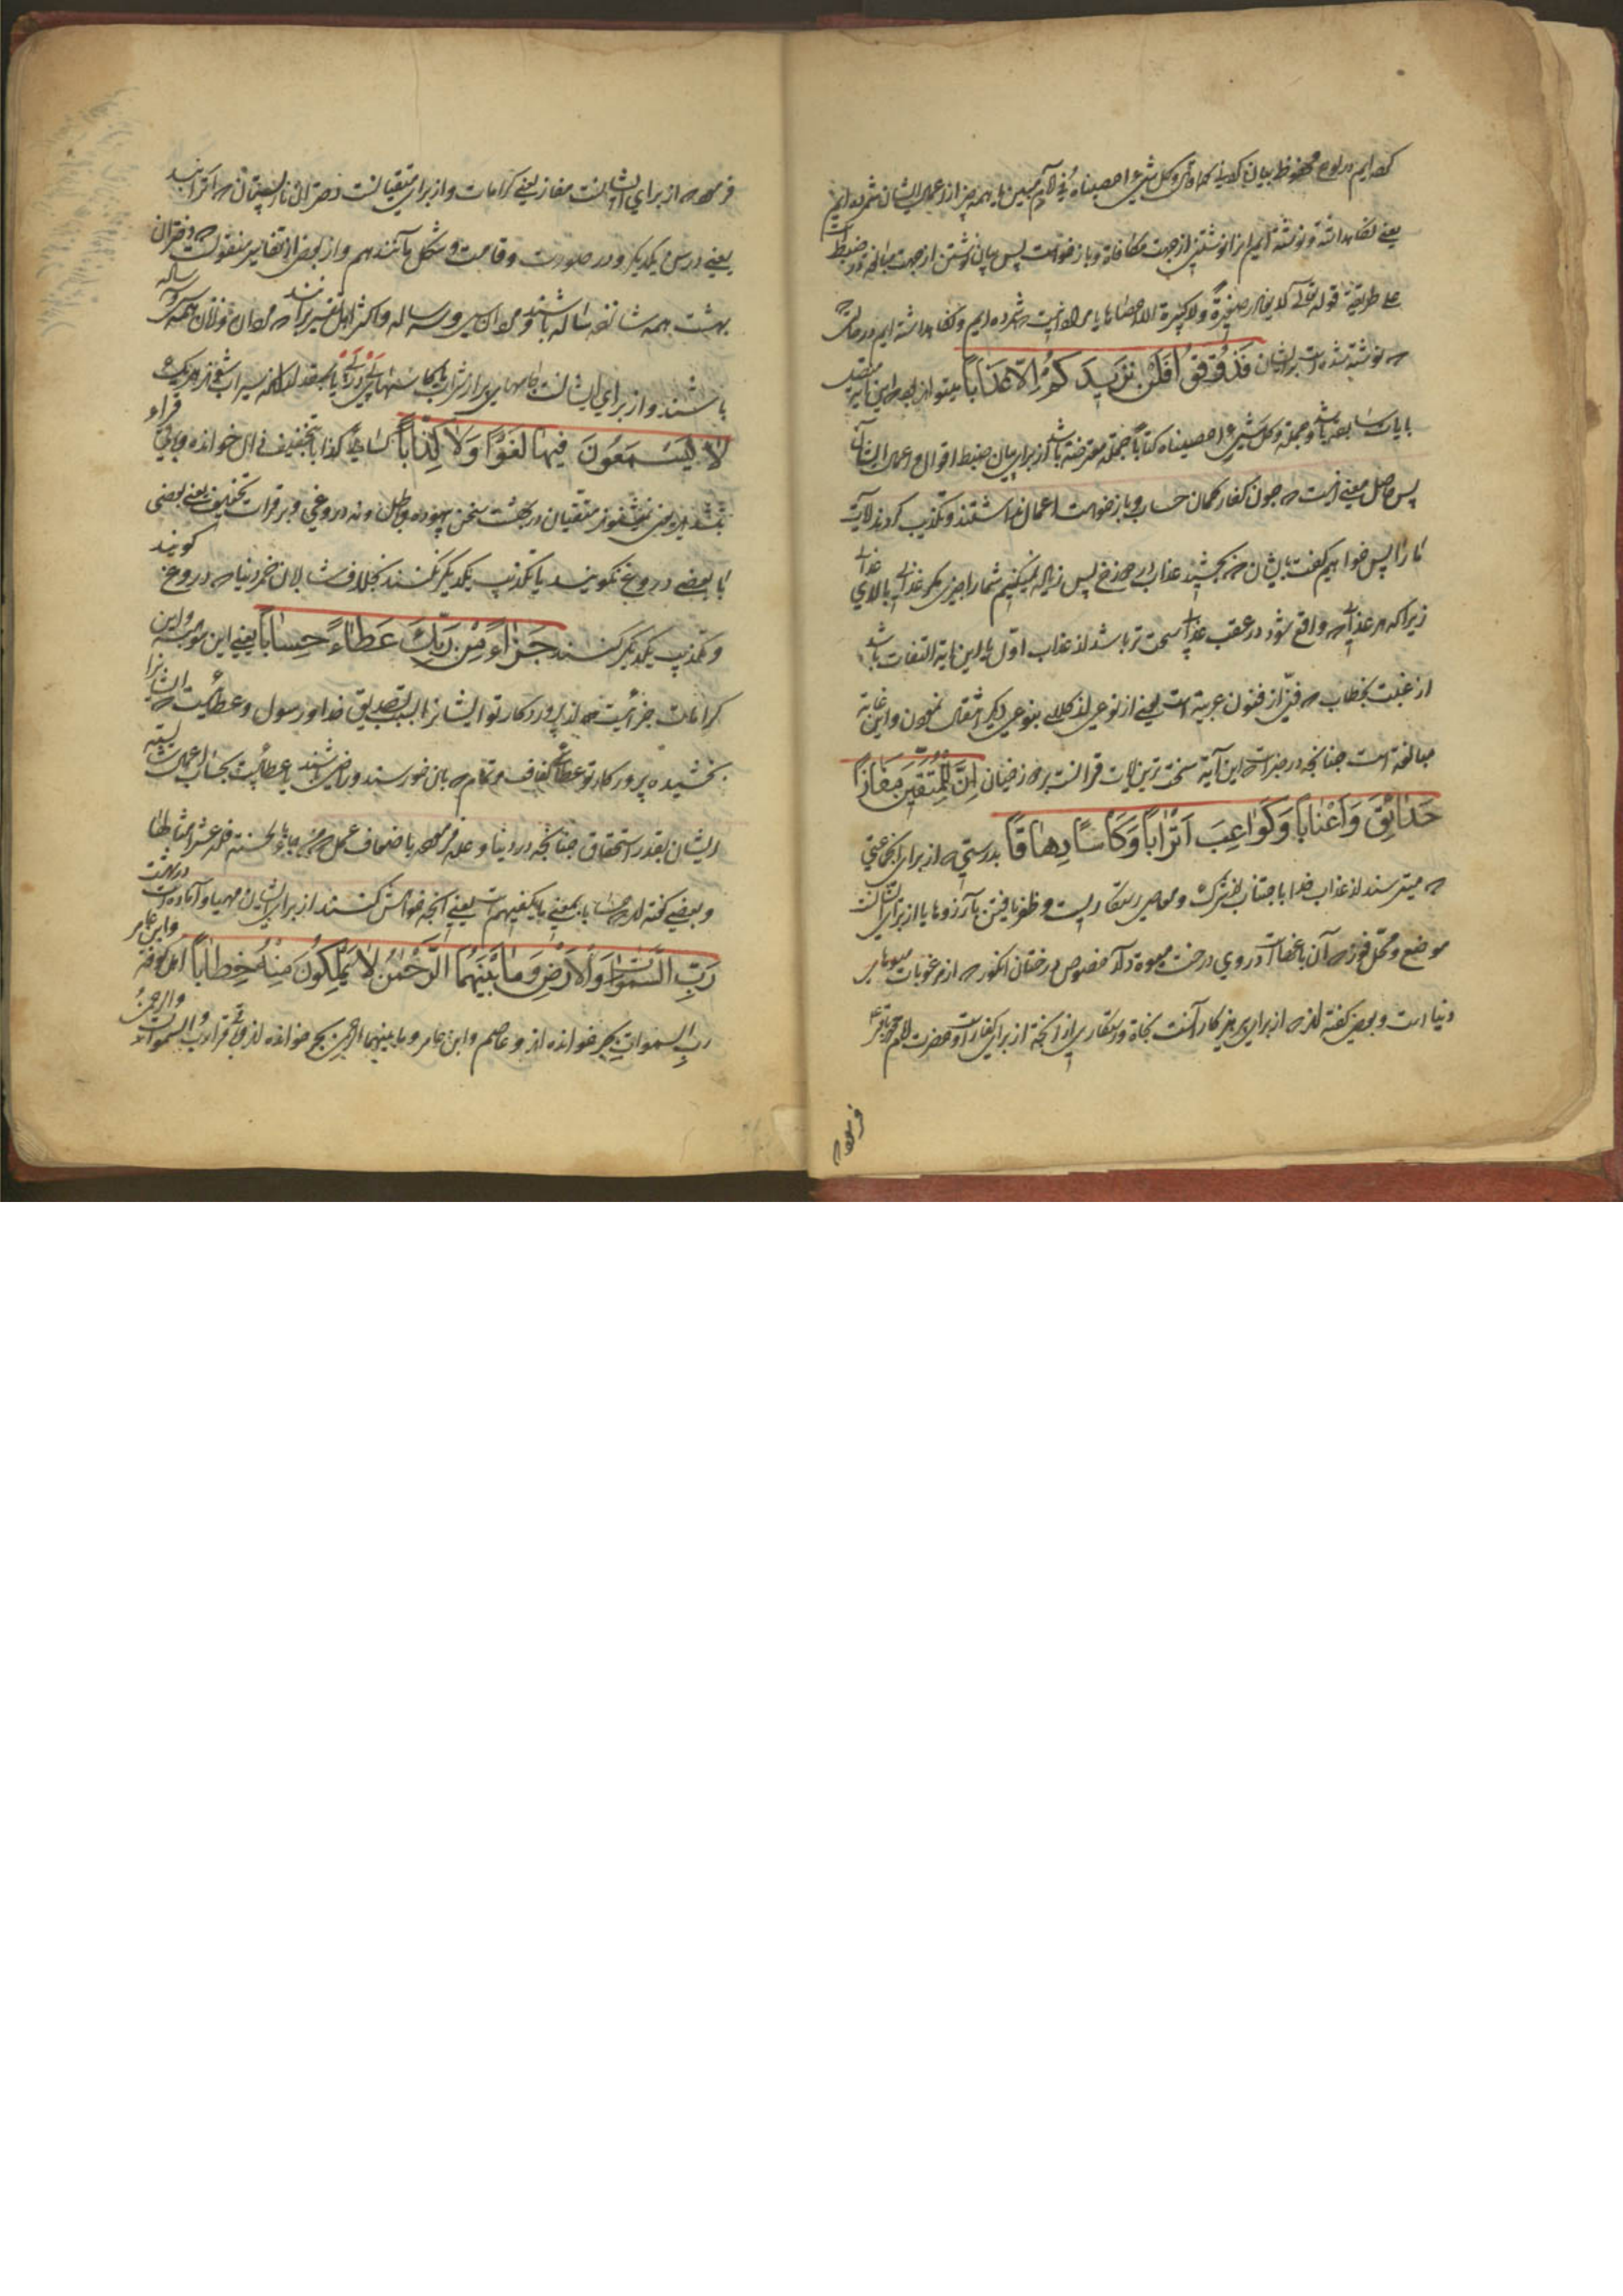 کرده ایم در لوح محفوظ بیان کردیم کما قال وکل شیء احصیناه فی امام مبین یا همه چیز از اعمال ایشان شمرده ایم
یعنی نگاهداشته و نوشته ایم انرا نوشتنی از جهت مکافاة و بازخواست پس بیان نوشتن از جهت مبالغه در ضبط است
علی طریقة قوله تعالی لا یغادر صغیرة ولا کبیرة الا احصاها یا مراد انست که شمرده ایم و نگاهداشته ایم در حالتی
که نوشته شده است بر ایشان فَذُوقُوا فَلَنْ نَزِيدَكُمْ اِلَّا عَذَابًا میتواند بود که این آیه متصل
بآیات سابقه باشد و جمله وکل شیء احصیناه کتابا جمله معترضه باشد از برای بیان ضبط اقوال و اعمال ایشان
پس حاصل معنی اینست که چون کفار گمان حساب و بازخواست اعمال نداشتند و تکذیب کردند آیات
ما را پس خواهیم گفت بایشان که بچشید عذاب دوزخ پس زیاده نمیکنیم شما را چیزی مگر عذابی بالای عذاب
زیرا که هر عذابی که واقع شود در عقب عذابی سخت تر باشد از عذاب اول یا این بآیة التفات باشد
از غیبت بخطاب که فنی از فنون عربیة است یعنی از نوعی از کلام بنوعی دیگر انتقال نمودن و این غایة
مبالغه است چنانچه در خبر است که این آیه سخت ترین آیات قرآنست بر دوزخیان اِنَّ لِلْمُتَّقِينَ مَفَازًا
حَدَائِقَ وَاَعْنَابًا وَكَوَاعِبَ اَتْرَابًا وَكَأْسًا دِهَاقًا بدرستی که از برای جماعتی
که میترسند از عذاب خدا باجتناب از شرک و معاصی رستگاریست و ظفر یافتن بآرزوها یا از برای ایشانست
موضع و محل فوز که آن باغهاست در وی درخت میوه دار خصوص درختان انگور که از مرغوبات میوهای
دنیا است و بعضی گفته اند که از برای پرهیزکارانست نجاة و رستگاری از انچه از برای کفار است و حضرت امام محمد باقر ع
فرموده
فرموده که از برای ایشانست مفاز یعنی کرامات و از برای متقیانست دختران نار پستان که اتراب اند
یعنی در سن یکدیگر و در صورت و قامت و شکل مانند هم و از بعضی از تفاسیر منقولست که دختران
بهشت همه شانزده ساله باشند و مردان سی و سه ساله و اکثر اهل تفسیر برانند که مردان و زنان همه سی و سه ساله
باشند و از برای ایشانست جامهای پر از شراب یا کاسهای پی در پی یا بقدر انکه سیراب شوند هر یک
لَا يَسْمَعُونَ فِيهَا لَغْوًا وَلَا كِذَّابًا کسائی کذابا بتخفیف ذال خوانده و باقی قراء
بتشدید یعنی نمیشنوند متقیان در بهشت سخن بیهوده و باطل و نه دروغی و بر قرائت تخفیف یعنی بعضی
با بعضی دروغ نگویند یا تکذیب یکدیگر نکنند بخلاف شاربان خمر دنیا که دروغ گویند
و تکذیب یکدیگر کنند جَزَاءً مِنْ رَبِّكَ عَطَاءً حِسَابًا یعنی این مرتبه و این
کرامات جزائیست که از پروردگار تو ایشانرا بسبب تصدیق خدا و رسول و عطائیست که ایشانرا
بخشیده پروردگار تو عطای کفاف و تمام که بان خورسند و راضی باشند یا عطائیست بحساب اعمال حسنه
ایشان بقدر استحقاق چنانچه در دنیا وعده فرموده باضعاف عمل که من جاء بالحسنة فله عشر امثالها
و بعضی گفته اند حسابا بمعنی ما یکفیهم است یعنی انچه خواهش کنند از برای ایشان مهیا و آماده است در بهشت
رَبِّ السَّمَوَاتِ وَالْاَرْضِ وَمَا بَيْنَهُمَا الرَّحْمٰنُ لَا يَمْلِكُونَ مِنْهُ خِطَابًا اهل کوفه وابن عامر
رب السموات بجر خوانده اند و عاصم وابن عامر وما بینهما الرحمن بجر خوانده اند و باقی قراء رب السموات والرحمن